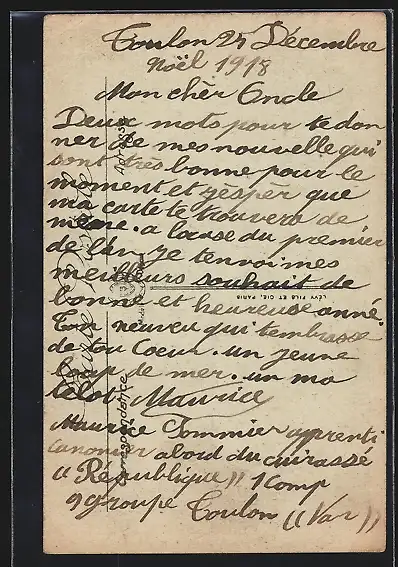 Toulon 25 Décembre
Noël 1918
Mon chèr Oncle
Deux mots pour te don
ner de mes nouvelle qui
sont très bonne pour le
moment et j'éspèr que
ma carte te trouvera de
même. a locase du premier
de l'An je tenvoi mes
meilleurs souhait de
bonne et heureuse anné.
Ton neuveu qui tembrasse
de tou Coeur. un jeune
loup de mer. un ma
telot Maurice
Maurice Tommier apprenti
canonier abord du cuirassé
"République" 1 Comp
9 groupe Toulon (Var)
Adresse
Correspondance
LÉVY FILS ET CIE, PARIS
Carte Postale